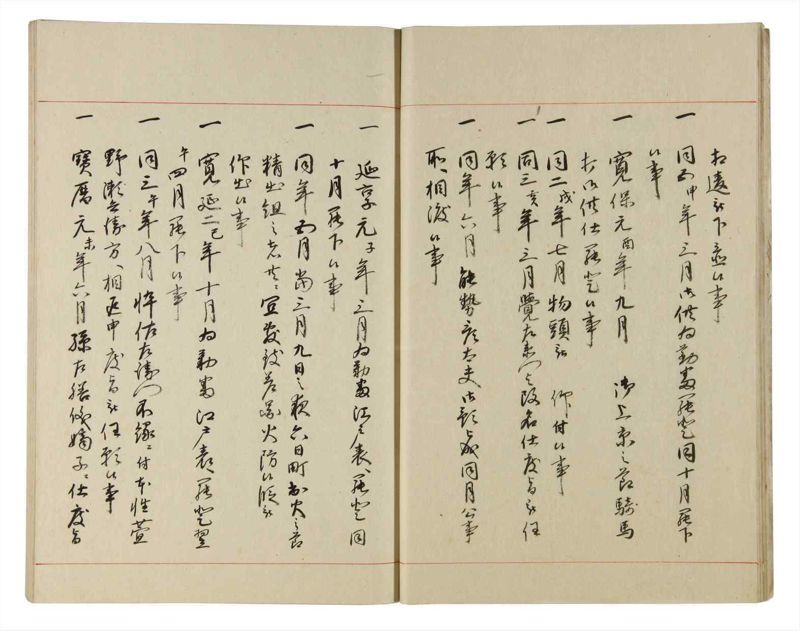 被下置候事
一 同五申年三月御供為勤番罷登同十月罷下
候事
一 寛保元酉年九月 御上京之節騎馬
御供仕罷登候事
一 同二戌年七月物頭被 仰付候事
一 同三亥年三月覺左衛門と改名仕度旨被任
願候事
一 同年六月能勢彦太夫御预与成同月公事
取相渡候事
一 延享元子年三月為勤番江戸表罷登同
十月罷下候事
一 同年五月尚三月九日之夜六日町出火之節
精出組之者共宜差火防候段被
作出候事
一 寛延二巳年十月為勤番江戸表罷登翌
午四月罷下候事
一 同三午年八月忰佐左衛門不縁ニ付本性萱
野瀬兵衛方相返申度旨被任願候事
一 寶暦元未年六月孫左膳儀嫡子ニ仕度旨